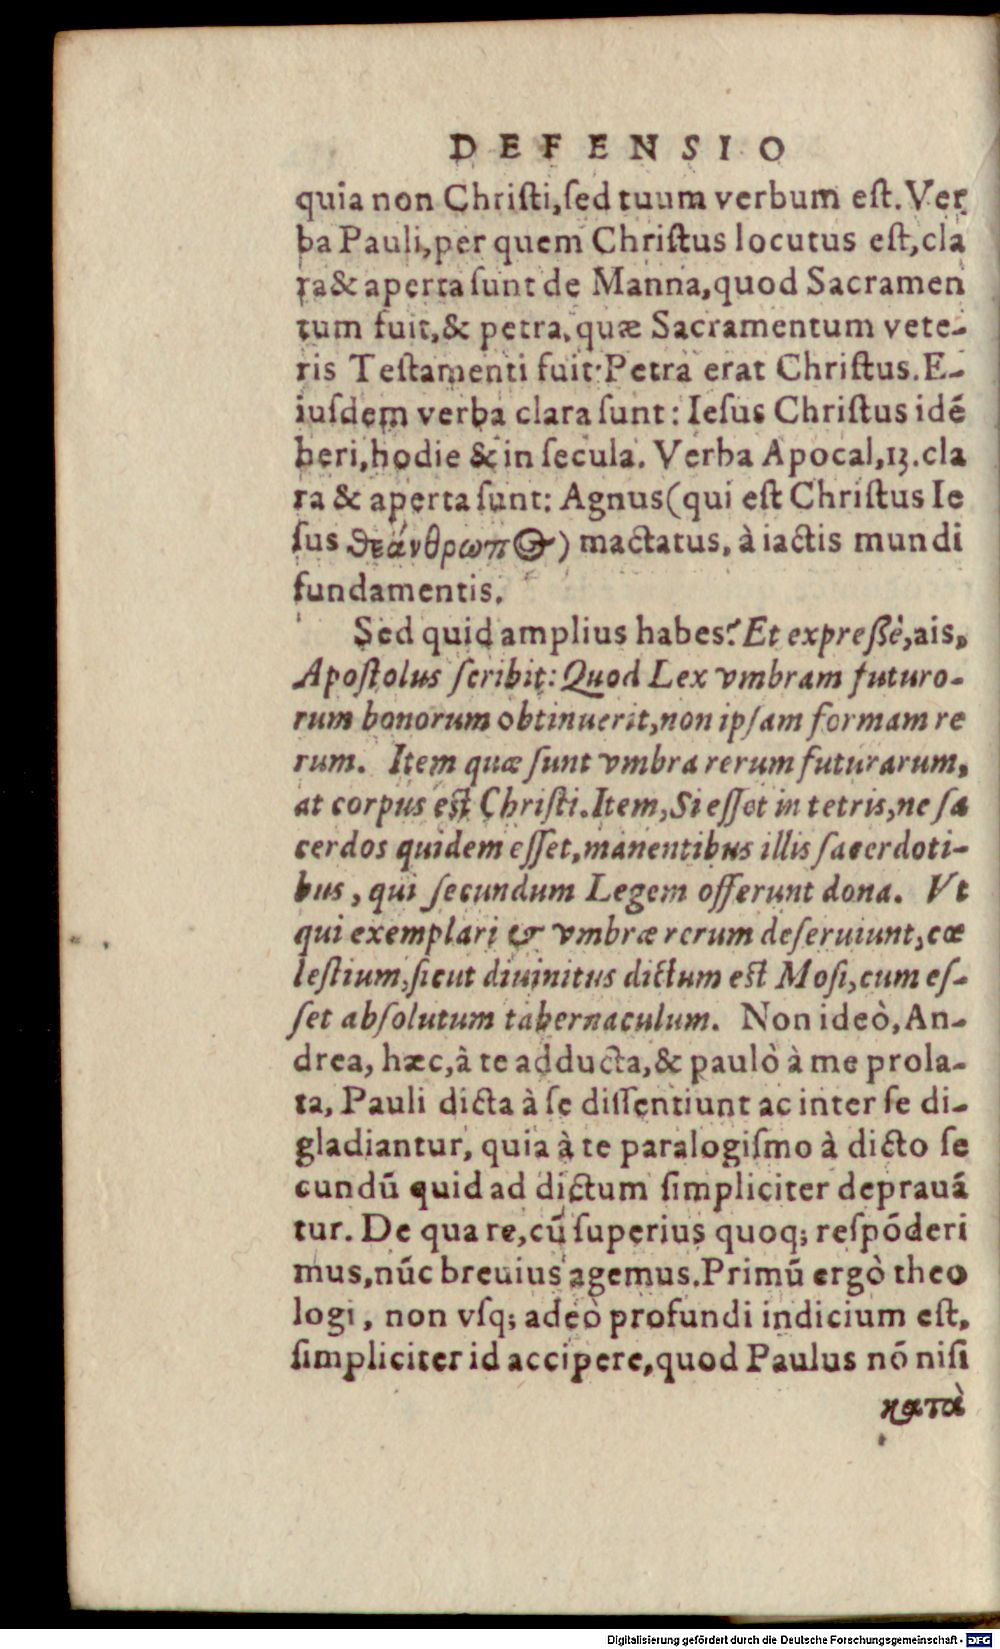 DEFENSIO
quia non Christi, sed tuum verbum est. Ver
ba Pauli, per quem Christus locutus est, cla
ra & aperta sunt de Manna, quod Sacramen
tum fuit, & petra, quæ Sacramentum vete-
ris Testamenti fuit: Petra erat Christus. E-
iusdem verba clara sunt: Iesus Christus idē
heri, hodie & in secula. Verba Apocal, 13. cla
ra & aperta sunt: Agnus (qui est Christus Ie
sus θεάνθρωπος) mactatus, à iactis mundi
fundamentis.
Sed quid amplius habes? Et expreßè, ais,
Apostolus scribit: Quod Lex vmbram futuro-
rum bonorum obtinuerit, non ipsam formam re
rum. Item quæ sunt vmbra rerum futurarum,
at corpus est Christi. Item, Si esset in tetris, ne sa
cerdos quidem esset, manentibus illis sacerdoti-
bus, qui secundum Legem offerunt dona. Vt
qui exemplari & vmbræ rerum deseruiunt, cœ
lestium, sicut diuinitus dictum est Mosi, cum es-
set absolutum tabernaculum. Non ideò, An-
drea, hæc, à te adducta, & paulò à me prola-
ta, Pauli dicta à se dissentiunt ac inter se di-
gladiantur, quia à te paralogismo à dicto se
cundū quid ad dictum simpliciter deprauā
tur. De qua re, cū superius quoq; respōderi
mus, nūc breuius agemus. Primū ergò theo
logi, non vsq; adeò profundi indicium est,
simpliciter id accipere, quod Paulus nō nisi
κατὰ
Digitalisierung gefördert durch die Deutsche Forschungsgemeinschaft - DFG